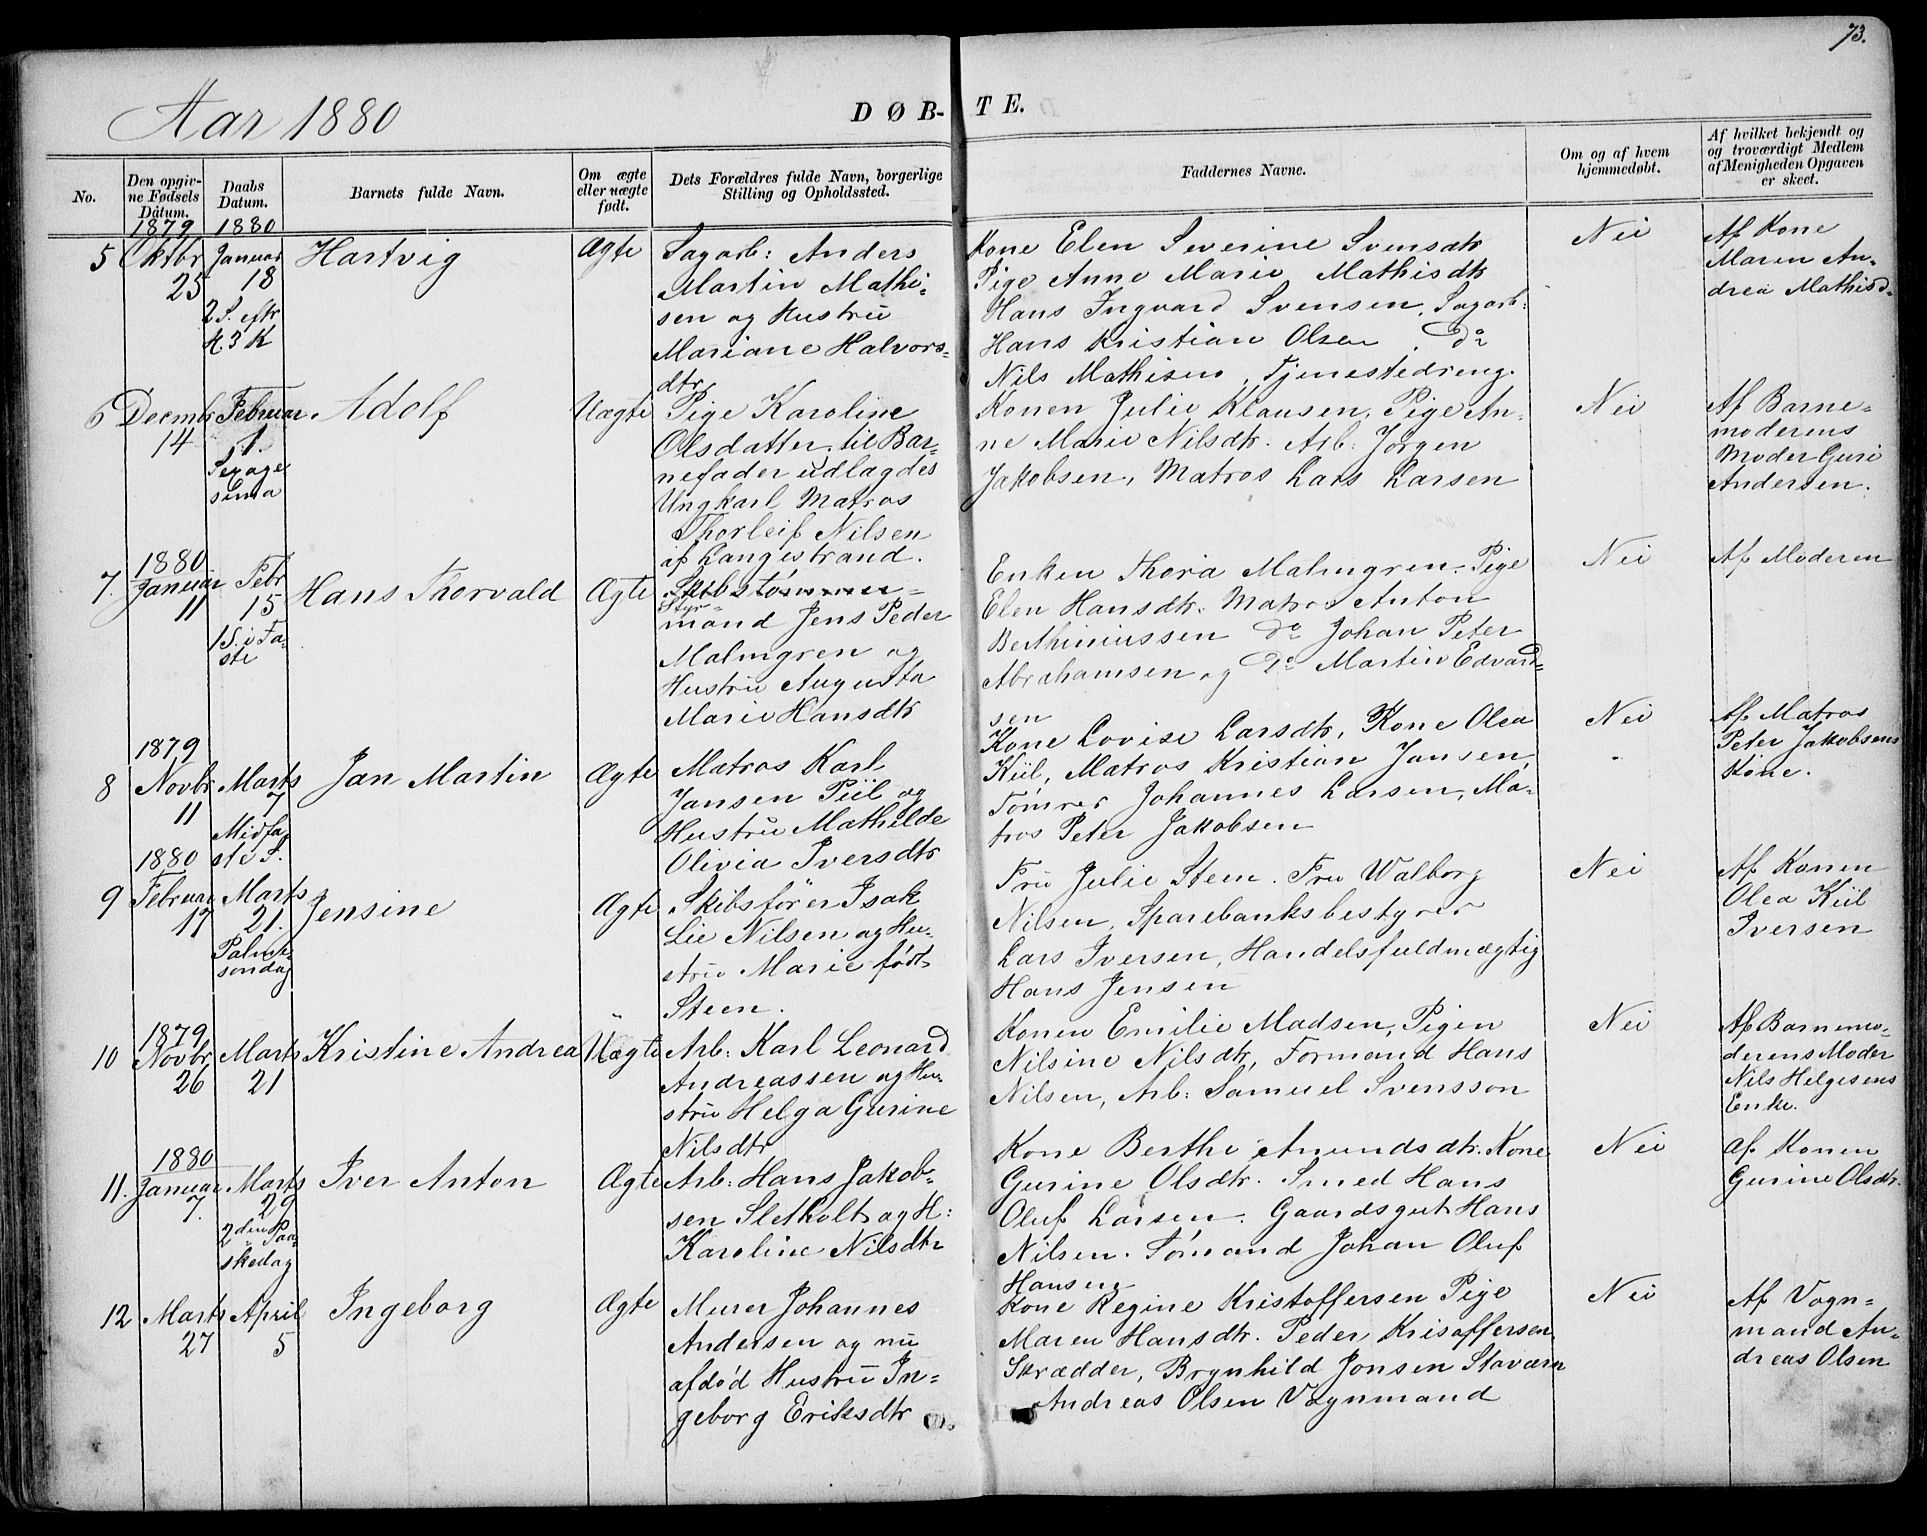 73.
Aar 1880
DØB-
TE.
No.
Den opgiv-
ne Fødsels
Datum.
Daabs
Datum.
Barnets fulde Navn.
Om ægte
eller uægte
født.
Dets Forældres fulde Navn, borgerlige
Stilling og Opholdssted.
Faddernes Navne.
Om og af hvem
hjemmedøbt.
Af hvilket bekjendt og
og troværdigt Medlem
af Menigheden Opgaven
er skeet.
1879
1880
5
Oktbr
25
Januar
18
2 S. eftr
H. 3 K
Hartvig
Ægte
Sagarb: Anders
Martin Mathi-
sen og Hustru
Mariane Halvors-
dtr
Kone Elen Severine Svensdtr
Pige Anne Marie Mathisdtr
Hans Ingvard Svensen, Sagarb:
Hans Kristian Olsen do
Nils Mathisen, Tjenestedreng.
Nei
Af Kone
Maren An-
drea Mathisd-
6
Decmbr
14
Februar
1.
Sexage
sima
Adolf
Uægte
Pige Karoline
Olsdatter, til Bar-
nefader udlagdes
Ungkarl Matros
Thorleif Nilsen
af Langestrand.
Konen Julie Klausen, Pige An-
ne Marie Nilsdtr. Arb: Jørgen
Jakobsen, Matros Lars Larsen
Nei
Af Barne-
moderens
Moder Guri
Andersen.
7.
1880
Januar
11
Febr
15
1 S. i Fa-
ste
Hans Thorvald
Ægte
Skibstømmer-
Styr-
mand Jens Peder
Malmgren og
Hustru Augusta
Marie Hansdtr
Enken Thora Malmgren. Pige
Elen Hansdtr. Matros Anton
Berthiniussen do Johan Peter
Abrahamsen og do Martin Edvard-
sen
Nei
Af Moderen
8
1879
Novbr
11
Marts
7
Midfa
ste S.
Jan Martin
Ægte
Matros Karl
Jansen Piil og
Hustru Mathilde
Olivia Iversdtr
Kone Lovise Larsdtr, Kone Olea
Kiil, Matros Kristian Jansen,
Tømrer Johannes Larsen, Ma-
tros Peter Jakobsen
Nei
Af Matros
Peter Jakobsens
Kone.
9
1880
Februar
17
Marts
21.
Palme-
søndag
Jensine
Ægte
Skibsfører Isak
Lie Nilsen og Hu-
stru Marie født
Steen.
Fru Julie Steen. Fru Walborg
Nilsen, Sparebanksbestyrer
Lars Iversen, Handelsfuldmægtig
Hans Jensen
Nei
Af Konen
Olea Kiil
Iversen
10
1879
Novbr
26
Marts
21
Kristine Andrea
Uægte
Arb: Karl Leonard
Andreassen og Hu-
stru Helga Gurine
Nilsdtr
Konen Emilie Madsen, Pigen
Nilsine Nilsdtr, Formand Hans
Nilsen, Arb: Samuel Svensson
Nei
Af Barnemo-
derens Moder
Nils Helgesens
Enke.
11.
1880
Januar
7.
Marts
29
2den Paa-
skedag
Iver Anton
Ægte
Arb: Hans Jakob-
sen Sletholt og H:
Karoline Nilsdtr
Kone Berthe Amundsdtr. Kone
Gurine Olsdtr. Smed Hans
Oluf Larsen. Gaardsgut Hans
Nilsen. Sømand Johan Oluf
Hansen
Nei
af Konen
Gurine Olsdtr.
12
Marts
27
April
5
Ingeborg
Ægte
Murer Johannes
Andersen og nu
afdød Hustru In-
geborg Eriksdtr
Kone Regine Kristoffersen Pige
Maren Hansdtr. Peder Krisoffersen
Skrædder, Brynhild Jonsen Staværn
Andreas Olsen Vognmand
Nei
Af Vogn-
mand An-
dreas Olsen